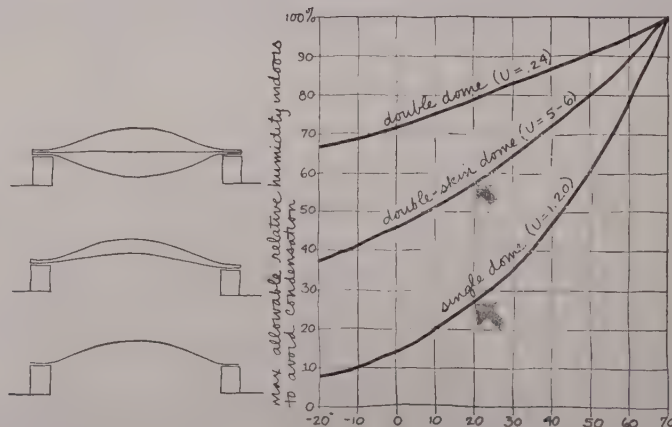 max allowable relative humidity indoors
to avoid condensation
100%
90
80
70
60
50
40
30
20
10
0
double dome (U=.24)
double-skin dome (U=.5-6)
single dome (U=1.20)
-20
-10
0
10
20
30
40
50
60
70